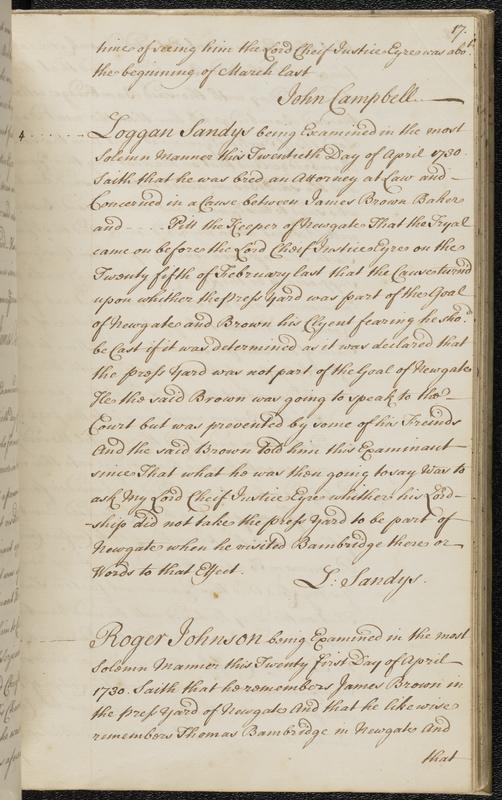 17.
time of seeing him the Lord Cheif Justice Eyre was abo.t
the beginning of March last
John Campbell
4 Loggan Sandys being Examined in the most
Solemn Manner this Twentieth Day of April 1730.
Saith that he was bred an Attorney at Law and
Concerned in a Cause between James Brown Baker
and .... Pitt the Keeper of Newgate That the Tryal
came on before the Lord Cheif Justice Eyre on the
Twenty fifth of February last that the Cause turnd
upon whether the Press Yard was part of the Goal
of Newgate and Brown his Clyent fearing he sho.d
be Cast if it was determined as it was declared that
the Press Yard was not part of the Goal of Newgate
He the said Brown was going to speak to the
Court but was prevented by some of his Freinds
And the said Brown told him this Examinant
since That what he was then going to say Was to
ask My Lord Cheif Justice Eyre whither his Lord-
-ship did not take the Press Yard to be part of
Newgate when he visited Bambridge there or
Words to that Effect.
L: Sandys.
Roger Johnson being Examined in the most
Solemn Manner this Twenty first Day of April
1730. Saith that he remembers James Brown in
the Press Yard of Newgate And that he likewise
remembers Thomas Bambridge in Newgate And
that